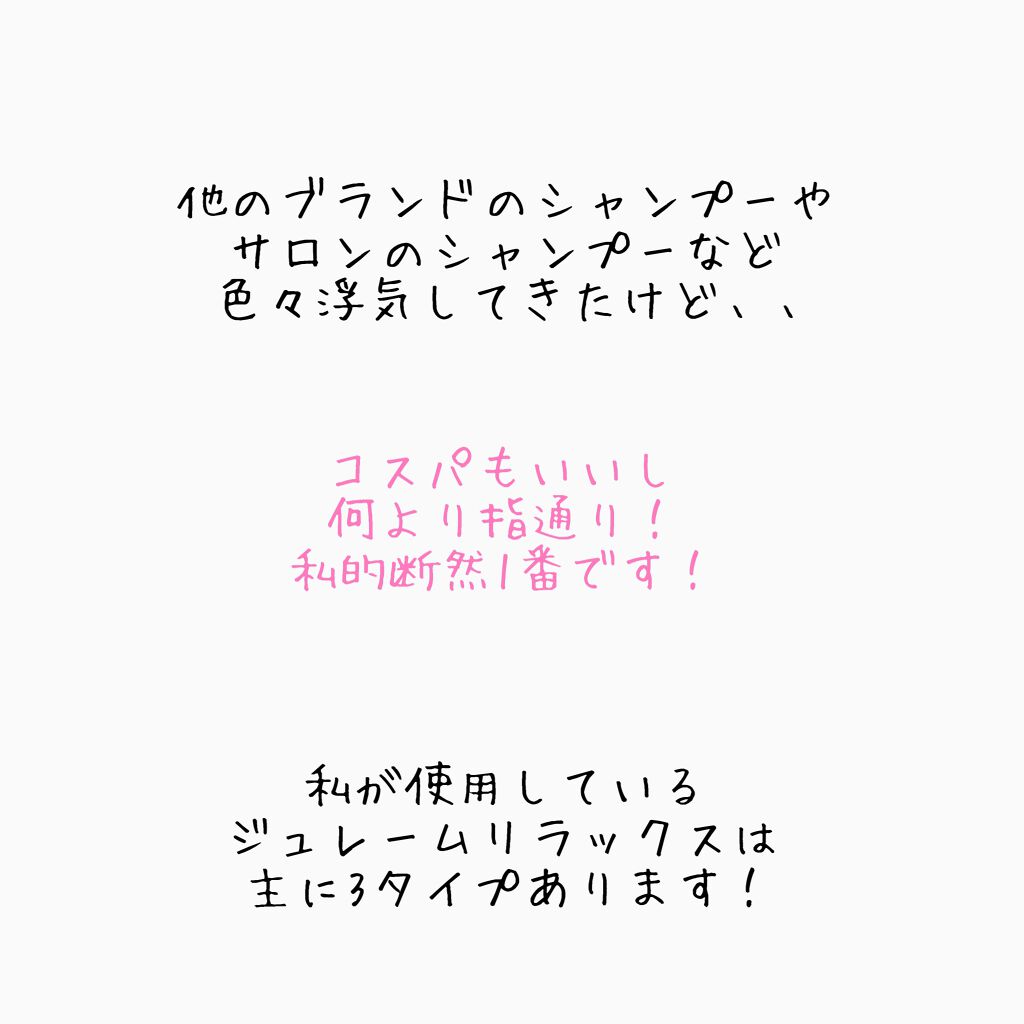 他のブランドのシャンプーや
サロンのシャンプーなど
色々浮気してきたけど、、
コスパもいいし
何より指通り！
私的断然1番です！
私が使用している
ジュレームリラックスは
主に3タイプあります！